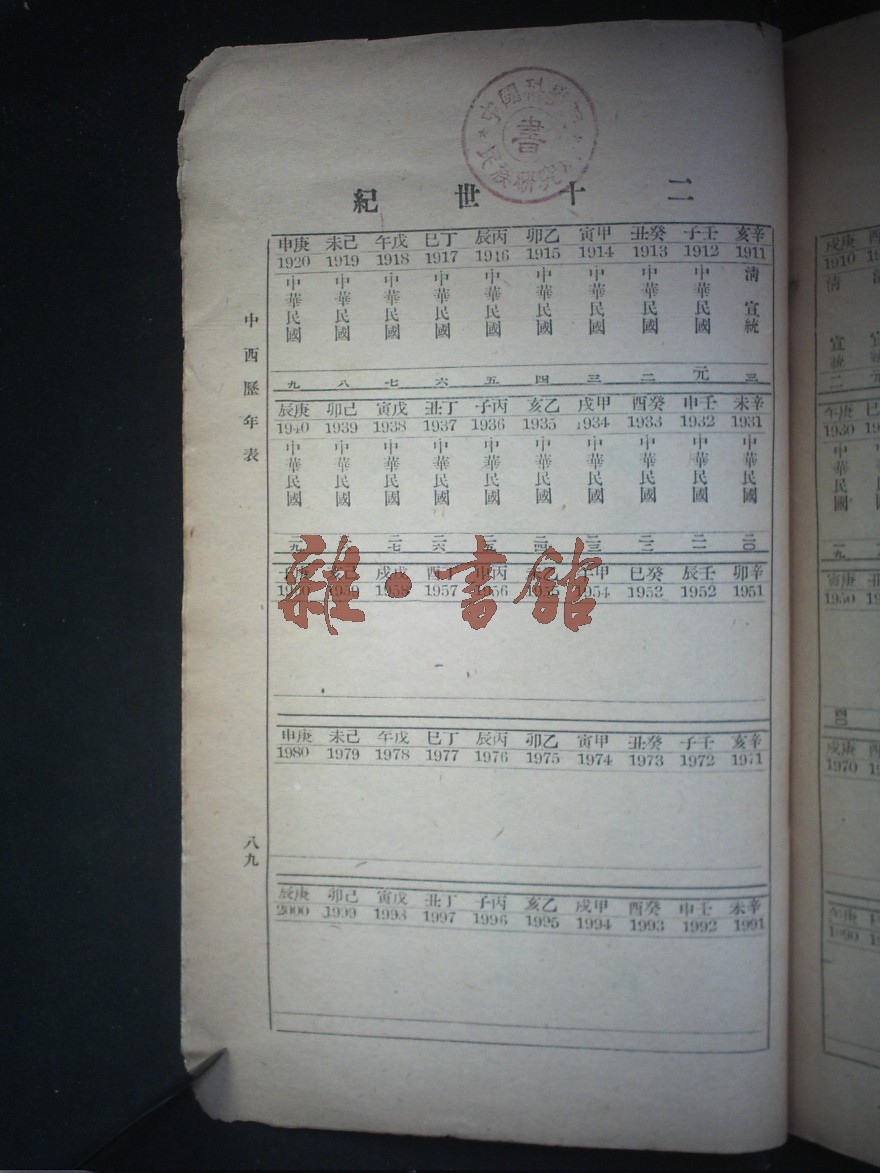 中國科學
書
民族研究
紀 世 十 二
申庚 未己 午戊 巳丁 辰丙 卯乙 寅甲 丑癸 子壬 亥辛
1920 1919 1918 1917 1916 1915 1914 1913 1912 1911
中華民國 中華民國 中華民國 中華民國 中華民國 中華民國 中華民國 中華民國 中華民國 清宣統
九 八 七 六 五 四 三 二 元 三
辰庚 卯己 寅戊 丑丁 子丙 亥乙 戌甲 酉癸 申壬 未辛
1940 1939 1938 1937 1936 1935 1934 1933 1932 1931
中華民國 中華民國 中華民國 中華民國 中華民國 中華民國 中華民國 中華民國 中華民國 中華民國
二九 二七 二六 二五 二四 二三 二二 二一 二〇
子庚 亥己 戌戊 酉丁 申丙 未乙 午甲 巳癸 辰壬 卯辛
1960 1959 1958 1957 1956 1955 1954 1953 1952 1951
雜·書館
申庚 未己 午戊 巳丁 辰丙 卯乙 寅甲 丑癸 子壬 亥辛
1980 1979 1978 1977 1976 1975 1974 1973 1972 1971
辰庚 卯己 寅戊 丑丁 子丙 亥乙 戌甲 酉癸 申壬 未辛
2000 1999 1998 1997 1996 1995 1994 1993 1992 1991
中西歷年表
八九
戌庚
1910
清
宣統
二
午庚
1930
中華民國
一九
寅庚
1950
四〇
戌庚
1970
午庚
1990